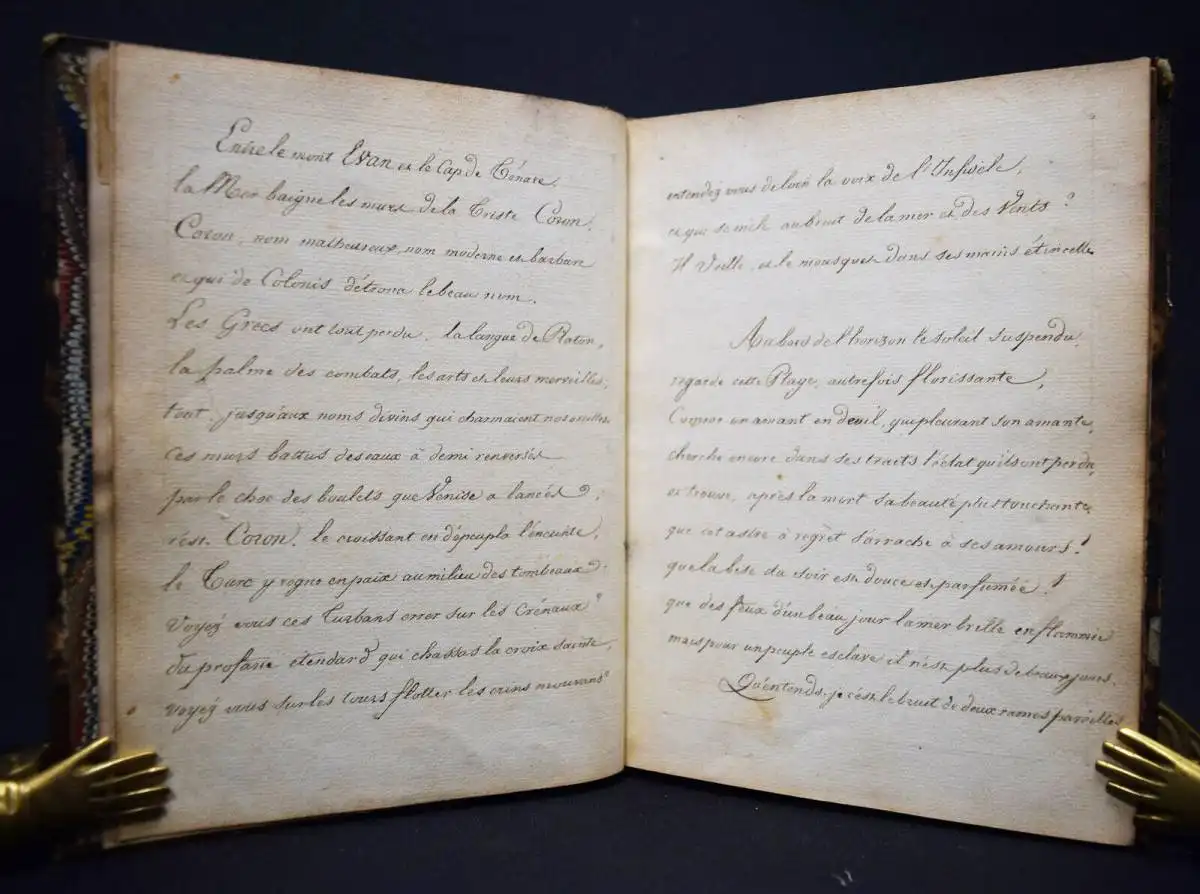 Entre le mont Evan et le Cap de Ténare,
la Mer baigne les murs de la triste Coron;
Coron, nom malheureux, nom moderne et barbare
et qui de Colonis détrona le beau nom.
Les Grecs ont tout perdu, la langue de Platon,
la palme des combats, les arts et leurs merveilles;
tout, jusqu'aux noms divins qui charmaient nos oreilles.
ces murs battus des eaux à demi renversés
par le choc des boulets que Venise a lancés,
c'est Coron. le croissant en dépeupla l'enceinte,
le Turc y règne en paix au milieu des tombeaux.
Voyez vous ces Turbans errer sur les Crénaux?
du profane étendard qui chassas la croix sainte,
voyez vous sur les tours flotter les crins mouvans?
entendez vous de loin la voix de l'Infidèle,
et qui se mêle au bruit de la mer et des Vents?
Il Veille, et le mousquet dans ses mains étincelle.
Au bord de l'horizon le soleil suspendu,
regarde cette Plage, autrefois florissante,
Comme un amant en deuil, qui pleurant son amante,
cherche encore dans ses traits l'éclat qu'ils ont perdu,
et trouve, après la mort sa beauté plus touchante.
que cet astre à regret s'arrache à ses amours!
que la bise du soir est douce et parfumée!
que des feux d'un beau jour la mer brille enflammée
mais pour un peuple esclave il n'est plus de beaux jours.
Qu'entends-je c'est le bruit de deux rames pareilles